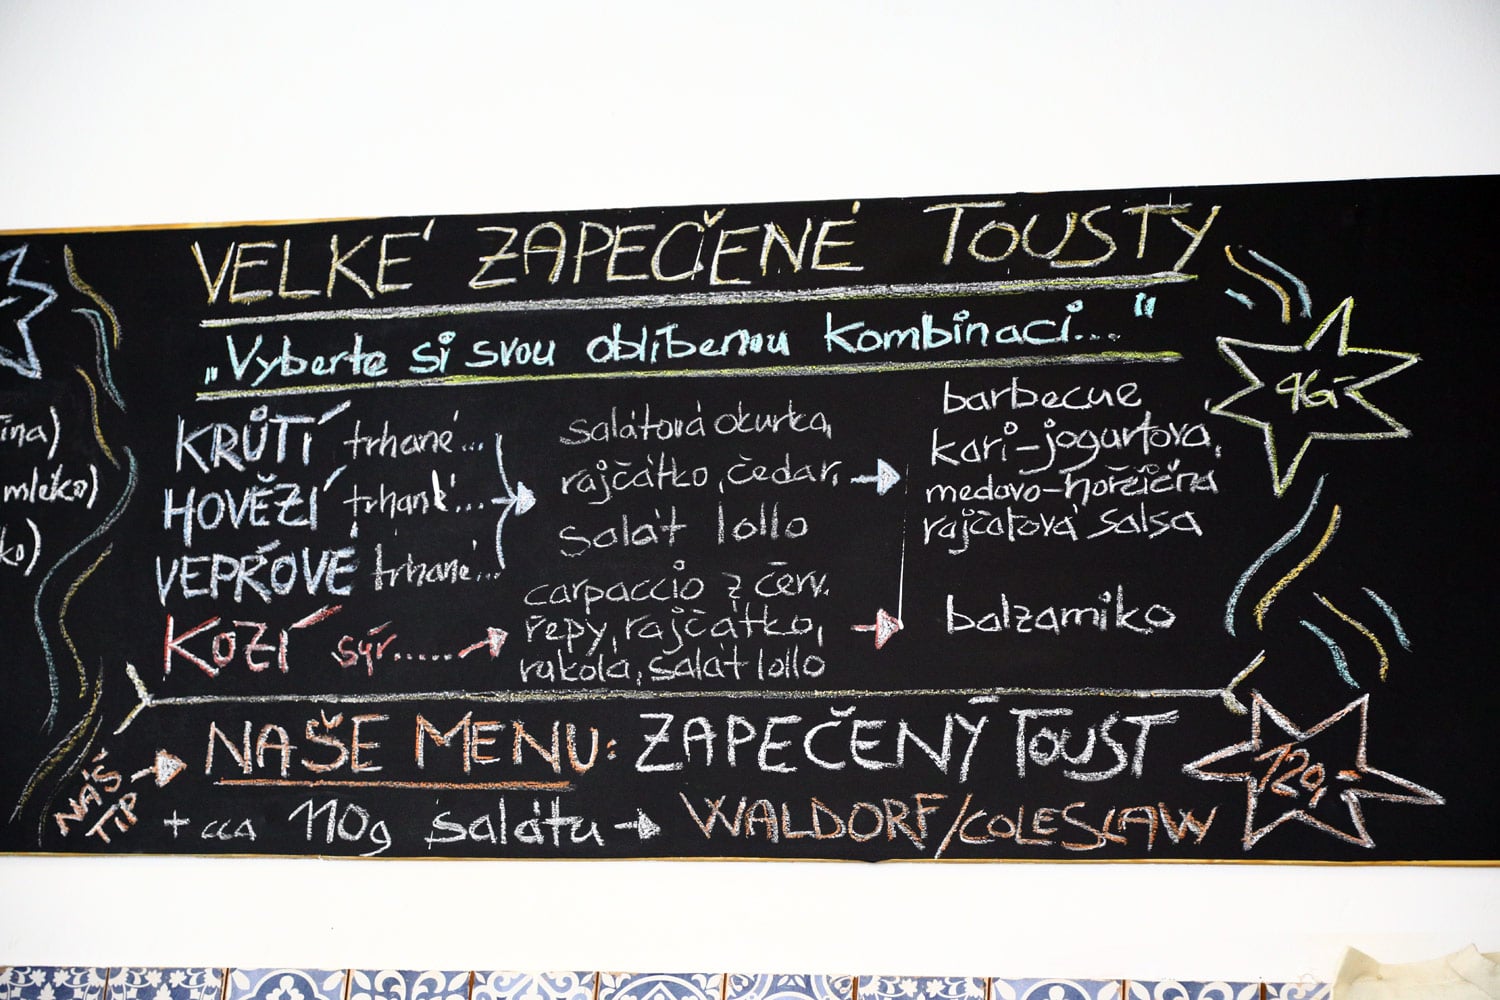 VELKÉ ZAPEČENÉ TOUSTY
„Vyberte si svou oblíbenou kombinaci..."
KRŮTÍ trhané...
HOVĚZÍ trhané...
VEPŘOVÉ trhané...
KOZÍ sýr......
salátová okurka,
rajčátko, čedar,
salát lollo
carpaccio z červ.
řepy, rajčátko,
rukola, salát lollo
barbecue
kari-jogurtová,
medovo-hořčičná
rajčatová salsa
balzamiko
96,-
NÁŠ TIP
NAŠE MENU: ZAPEČENÝ TOUST
+ cca 110g salátu → WALDORF/COLESLAW
120,-
ína)
mléko)
ko)